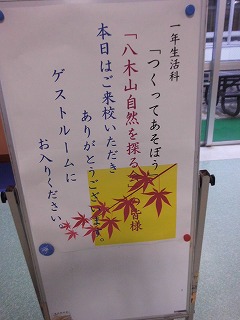 一年生活科
「つくってあそぼう」
「八木山自然を探る会」の皆様
本日はご来校いただき
ありがとうございます。
ゲストルームに
お入りください。